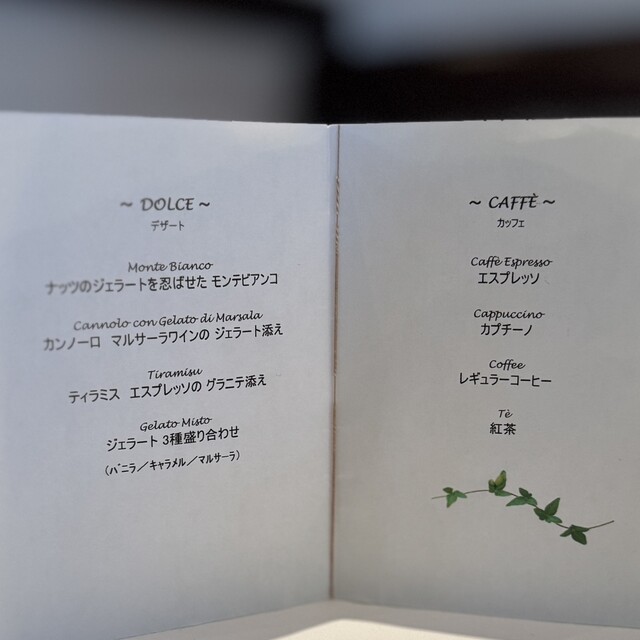 ~ DOLCE ~
デザート
Monte Bianco
ナッツのジェラートを忍ばせた モンテビアンコ
Cannolo con Gelato di Marsala
カンノーロ マルサーラワインの ジェラート添え
Tiramisu
ティラミス エスプレッソの グラニテ添え
Gelato Misto
ジェラート 3種盛り合わせ
(バニラ/キャラメル/マルサーラ)
~ CAFFÈ ~
カッフェ
Caffè Espresso
エスプレッソ
Cappuccino
カプチーノ
Coffee
レギュラーコーヒー
Tè
紅茶